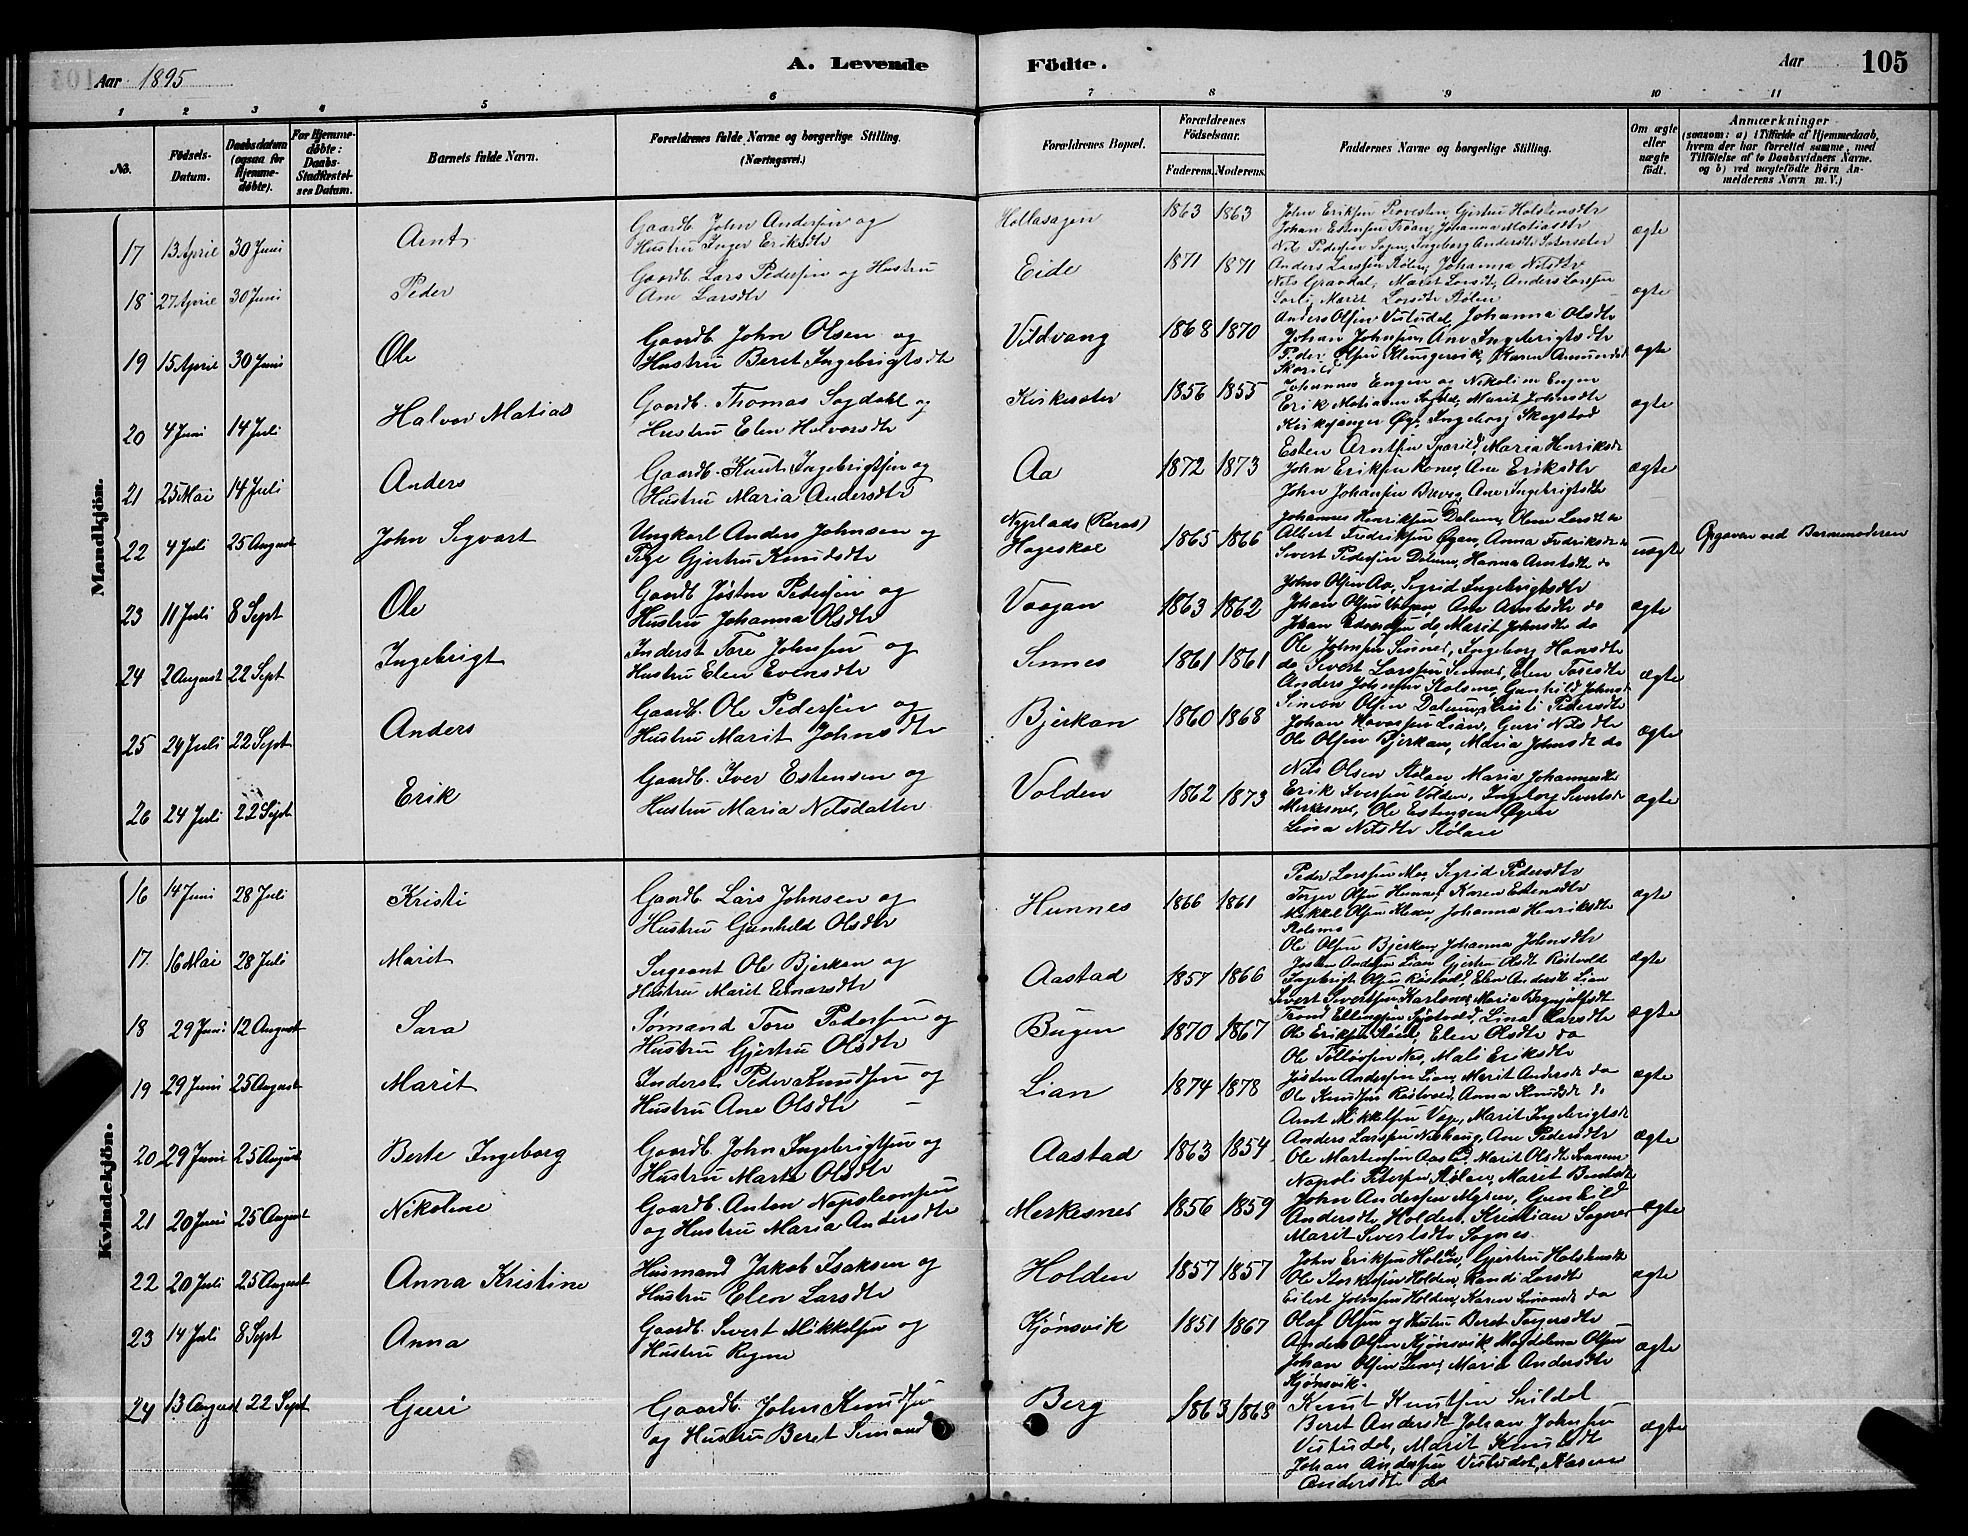 Aar 1895
A. Levende
Födte.
Aar
105
1 2 3 4 5 6 7 8 9 10 11
No.
Födsels-Datum.
Daabsdatum (ogsaa for Hjemme-döbte).
For Hjemme-döbte: Daabs-Stadfæstelses Datum.
Barnets fulde Navn.
Forældrenes fulde Navne og borgerlige Stilling. (Næringsvei.)
Forældrenes Bopæl.
Forældrenes Födselsaar.
Faderens. Moderens.
Faddernes Navne og borgerlige Stilling.
Om ægte eller uægte födt.
Anmærkninger
(saasom: a) i Tilfælde af Hjemmedaab, hvem der har forrettet samme, med Tilföielse af to Daabsvidners Navne. og b) ved uægtefödte Börn Anmelderens Navn m. V.)
Mandkjön.
17 13 April 30 Juni Arnt Gaardb. John Andersen og Hustru Inger Eriksdtr 1863 1863 John Eriksen Gjertru Holstensdtr Johan Estensen Troan, Johanna Matiasdtr Nils Pedersen Ingeborg Andersdtr ægte
18 27 April 30 Juni Peder Gaardb. Lars Pedersen og Hustru Ane Larsdtr Eide 1871 1871 Anders Larssen Stölen, Johanna Nilsdtr Marit Larsdt, Anders Larssen Marit Larsdtr Stölen ægte
19 15 April 30 Juni Ole Gaardb. John Olsen og Hustru Beret Ingebrigtsdtr Vildvang 1868 1870 Anders Olsen Johanna Olsdtr Johan Johnsen, Ane Ingebrigtsdtr Peder Olsen Klungervik, Karen Amundsdt Skarild ægte
20 4 Juni 14 Juli Halvor Matias Gaardb. Thomas Sogdahl og Hustru Elen Halvorsdtr Kirkesæter 1856 1855 Johannes Engen og Nikoline Engen Erik Matiasen Marit Johnsdtr Kirkesanger Öye, Ingeborg Skogstad ægte
21 25 Mai 14 Juli Anders Gaardb. Knut Ingebrigtsen og Hustru Maria Andersdtr Aa 1872 1873 Esten Arntsen Maria Henriksdt John Eriksen Rones, Ane Eriksdtr John Johansen Ane Ingebrigtsdtr ægte
22 4 Juli 25 August John Sigvart Ungkarl Anders Johnsen og Pige Gjertru Knudsdtr Nyplads (Roros) Hageskal 1865 1866 Johannes Henriksen Dalum, Olina Larsdt do Albert Fredriksen Öyan, Anna Fredriksdt do Sivert Pedersen Dalum, Hanna Arntsdtr do uægte Opgaven ved Barnemoderen
23 11 Juli 8 Sept Ole Gaardb Jösten Pedersen og Hustru Johanna Olsdtr Vaagan 1863 1862 John Olsen Aa, Sigrid Ingebrigtsdtr Johan Olsen Vaagan, Ane Arntsdtr do Johan Edvardsen do, Marit Johnsdtr do ægte
24 2 August 22 Sept Ingebrigt Inderst Tore Johnsen og Hustru Elen Evensdtr Sinnes 1861 1861 Ole Johnsen Sinnes, Ingeborg Hansdtr do Sivert Larssen Sinnes, Elen Toresdtr Anders Johnsen Stolsmo, Gunhild Johnsd ægte
25 24 Juli 22 Sept Anders Gaardb. Ole Pedersen og Hustru Marit Johnsdtr Bjerkan 1860 1868 Simon Olsen Dalum, Kristi Pedersdtr Johan Havorsen Lian, Guri Nilsdtr Ole Olsen Bjerkan, Maria Johnsdt do ægte
26 24 Juli 22 Sept Erik Gaardb. Iver Estensen og Hustru Maria Nilsdatter Volden 1862 1873 Nils Olsen Stölan Maria Johannesdtr Erik Iversen Volden, Ingeborg Sivertsdt Merkesnes, Ole Estensen Öyen Lina Nilsdtr Stölan ægte
Kvindekjön.
16 14 Juni 28 Juli Kristi Gaardb Lars Johnsen og Hustru Gunhild Olsdtr Hunnes 1866 1861 Peder Larssen Moe, Sigrid Pedersdtr Torger Olsen Hunnes, Karen Estensdtr Mikkel Olsen Johanna Henriksdtr Stolsmo ægte
17 16 Mai 28 Juli Marit Sergeant Ole Bjerkan og Hustru Marit Einarsdtr Aastad 1857 1866 Ole Olsen Bjerkan, Johanna Johnsdtr Josten Andersen Lian, Gjertru Olsdt Röstvold Ingebrigt Olsen Röstvold, Elen Andersdt Lian ægte
18 29 Juni 12 August Sara Sömand Tore Pedersen og Hustru Gjertru Olsdtr Bugen 1870 1867 Sivert Sivertsen Karlsnes, Maria Trond Ellingsen Lina Larsdtr Ole Eriksen Elen Olsdtr do Ole Tollövsen Nes, Mali Eriksdtr ægte
19 29 Juni 25 August Marit Inderst Peder Knudsen og Hustru Ane Olsdtr Lian 1874 1878 Jösten Andersen Lian, Marit Andersdt do Ole Knudsen Anna Knudsdt do Arnt Mikkelsen Marit Ingebrigtsdt ægte
20 29 Juni 25 August Berte Ingeborg Gaardb. John Ingebrigtsen og Hustru Marta Olsdtr Aastad 1863 1854 Anders Larssen Ane Pedersdtr Ole Martinsen Aastad, Marit Olsdt Petersen Stölan, Marit ægte
21 20 Juni 25 August Nikoline Gaardb. Anton Napoleonsen og Hustru Maria Andersdtr Merkesnes 1856 1859 John Andersen Myren, Gunhild Andersdtr Holden, Kristian Sognes Marit Sivertsdtr Sognes ægte
22 20 Juli 25 August Anna Kristine Husmand Jakob Isaksen og Hustru Elen Larsdtr Holden 1857 1857 John Eriksen Holden, Gjertru Holstensdt Ole Storkersen Holden, Randi Larsdtr Eilert Johnsen Holden, Karen do ægte
23 14 Juli 8 Sept Anna Gaardb. Sivert Mikkelsen og Hustru Regine Kjönsvik 1851 1867 Olaf Olsen og Hustru Beret Torgersdtr Anders Olsen Kjönsvik, Magdelena Olsen Johan Olsen Maria Andersdtr Kjönsvik ægte
24 13 August 22 Sept Guri Gaardb. John Knudsen og Hustru Beret Simonsd Berg 1863 1868 Knut Knutsen Snildal Beret Andersdt Johan Johnsen Marit Knutsdt Johan Andersen Karen Andersdtr do ægte